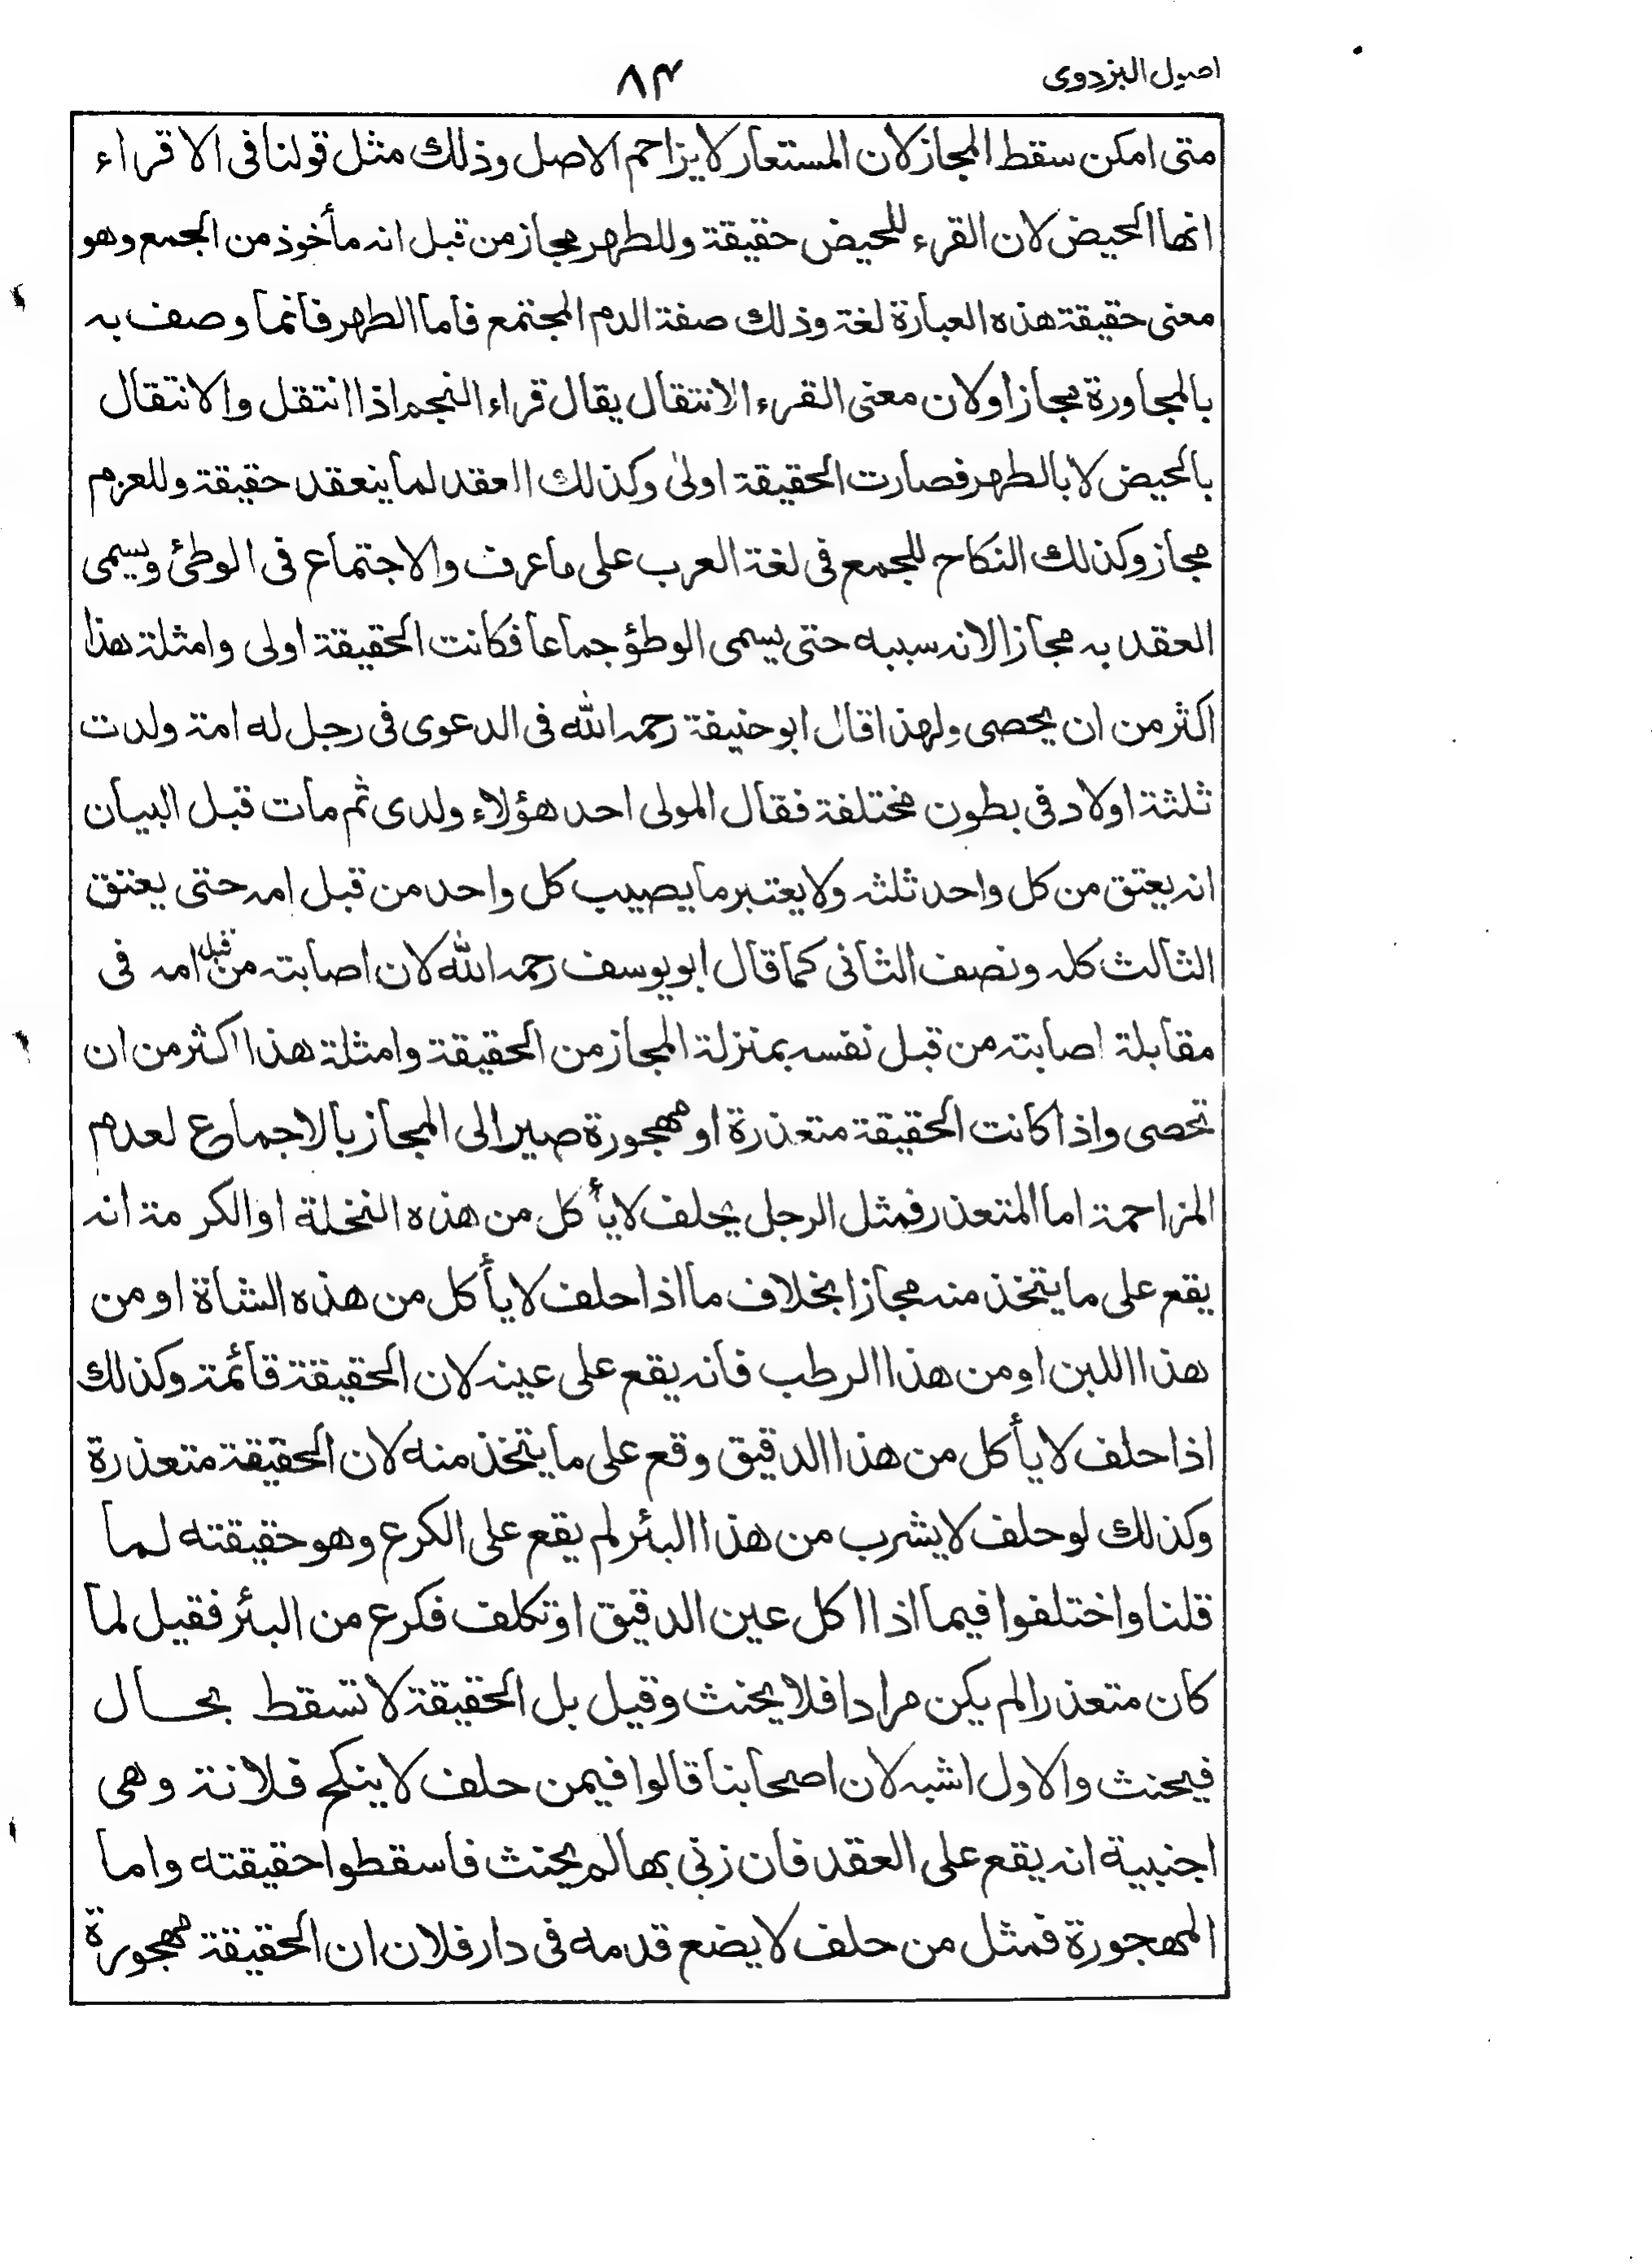 اصول البزدوی
۸۴
متی امکن سقط المجاز لان المستعار لا یزاحم الاصل وذلك مثل قولنا فی الاقراء
انھا الحیض لان القرء للحیض حقیقۃ وللطھر مجاز من قبل انہ مأخوذ من الجمع وھو
معنی حقیقۃ ھذہ العبارۃ لغۃ وذلك صفۃ الدم المجتمع فاما الطھر فانما وصف بہ
بالمجاورۃ مجازا ولان معنی القرء الانتقال یقال قراء النجم اذا انتقل والانتقال
بالحیض لا بالطھر فصارت الحقیقۃ اولیٰ وکذلك العقد لما ینعقد حقیقۃ وللعزم
مجاز وکذلك النکاح للجمع فی لغۃ العرب علی ما عرف والاجتماع فی الوطئ ویسمی
العقد بہ مجازا لانہ سببہ حتی یسمی الوطؤ جماعا فکانت الحقیقۃ اولی وامثلۃ ھذا
اکثر من ان یحصی ولھذا قال ابو حنیفۃ رحمہ اللہ فی الدعوی فی رجل لہ امۃ ولدت
ثلثۃ اولاد فی بطون مختلفۃ فقال المولی احد ھؤلاء ولدی ثم مات قبل البیان
انہ یعتق من کل واحد ثلثہ ولا یعتبر ما یصیب کل واحد من قبل امہ حتی یعتق
الثالث کلہ ونصف الثانی کما قال ابو یوسف رحمہ اللہ لان اصابتہ من قبل امہ فی
مقابلۃ اصابتہ من قبل نفسہ بمنزلۃ المجاز من الحقیقۃ وامثلۃ ھذا اکثر من ان
تحصی واذا کانت الحقیقۃ متعذرۃ او مھجورۃ صیر الی المجاز بالاجماع لعدم
المزاحمۃ اما المتعذر فمثل الرجل یحلف لا یأکل من ھذہ النخلۃ او الکرمۃ انہ
یقع علی ما یتخذ منہ مجازا بخلاف ما اذا حلف لا یأکل من ھذہ الشاۃ او من
ھذا اللبن او من ھذا الرطب فانہ یقع علی عینہ لان الحقیقۃ قائمۃ وکذلك
اذا حلف لا یأکل من ھذا الدقیق وقع علی ما یتخذ منہ لان الحقیقۃ متعذرۃ
وکذلك لو حلف لا یشرب من ھذا البئر لم یقع علی الکرع وھو حقیقتہ لما
قلنا واختلفوا فیما اذا اکل عین الدقیق او تکلف فکرع من البئر فقیل لما
کان متعذرا لم یکن مرادا فلا یحنث وقیل بل الحقیقۃ لا تسقط بحال
فیحنث والاول اشبہ لان اصحابنا قالوا فیمن حلف لا ینکح فلانۃ وھی
اجنبیۃ انہ یقع علی العقد فان زنی بھا لم یحنث فاسقطوا حقیقتہ واما
المھجورۃ فمثل من حلف لا یضع قدمہ فی دار فلان ان الحقیقۃ مھجورۃ